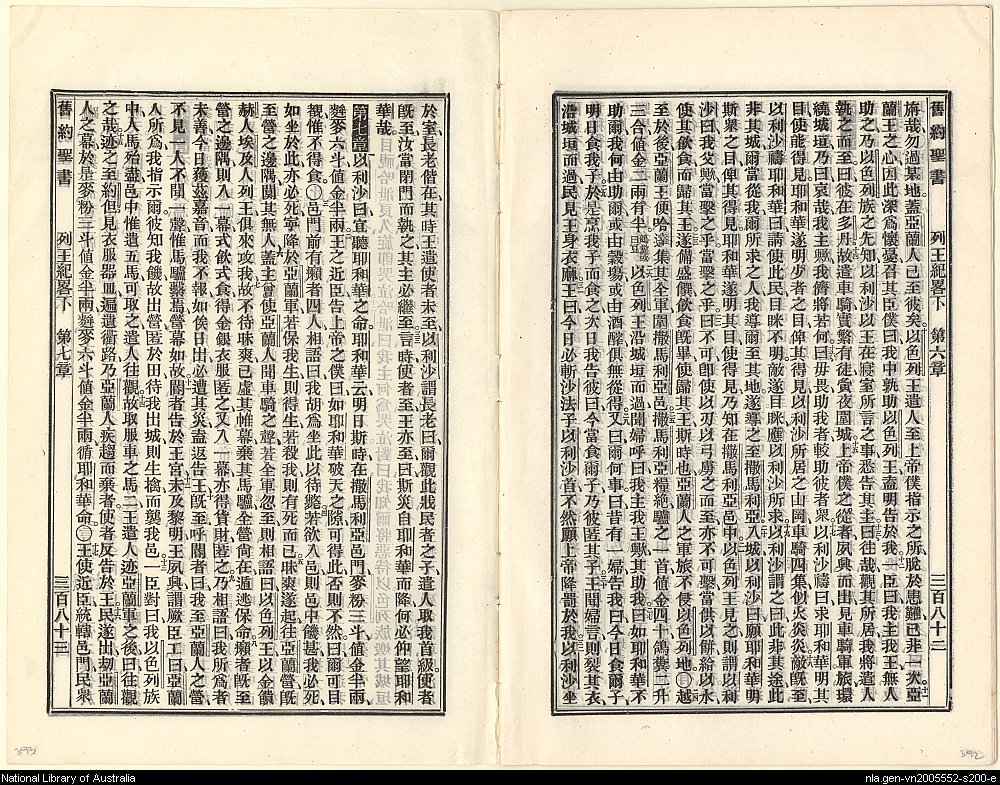 舊約聖書 列王紀畧下 第六章 三百八十二
旃哉勿過某地蓋亞蘭人已至彼矣以色列王遣人至上帝僕指示之所脫於患難已非一次亞
蘭王之心因此深為懷憂召其臣僕曰我中孰助以色列王盍明告於我一臣曰我主我王無人
助之乃以色列族之先知以利沙以王在寢室所言之事悉告其主曰往哉觀其所居我將遣人
執之而至曰彼在多丹故遣車騎實繁有徒寅夜圍城上帝僕之從者夙興而出見車騎軍旅環
繞城垣乃曰哀哉我主歟我儕將若何曰毋畏助我者較助彼者眾以利沙禱曰求耶和華明其
目使能得見耶和華遂明少者之目俾其得見以利沙所居之山岡車騎四集似火炎炎敵旣至
以利沙禱耶和華曰請使此民目眯不明敵遂目眯應以利沙所求以利沙謂之曰此非其途此
非其城爾當從我導爾至爾所求之人我導爾至其地遂導之至撒馬利亞入城以利沙曰願耶和華明
斯眾之目俾其得見耶和華遂明其目使得見乃知在撒馬利亞邑中以色列王見之則謂以利
沙曰我父歟當擊之乎當擊之乎曰不可卽使以刃以弓虜之而至亦不可擊當供以餅給以水
使其飲食而歸其主遂備盛饌飲食旣畢使歸其王斯時也亞蘭人之軍旅不復侵以色列地越
至於後亞蘭王便哈達集其全軍圍撒馬利亞邑撒馬利亞糧絕驢之一首值金四十鴿糞二升
三合值金二兩有半以色列王沿城垣而過聞婦呼曰我主我王歟其助我曰如耶和華不
助爾我何由助爾或由穀場或由酒醡俱無從得又曰爾何事曰昔有一婦告我曰今日食爾子
明日食我子於是烹我子而食之次日我告彼曰今當食爾子乃彼匿其子王聞婦言則裂其衣
沿城垣而過民見王身衣麻王曰今日必斬沙法子以利沙首不然願上帝降罰於我以利沙坐
於室長老偕在其時王遣使者未至以利沙謂長老曰爾觀此戕民者之子遣人取我首級使者
旣至汝當閉門而執之其主必繼至言時使者至王亦至曰斯災自耶和華而降何必仰望耶和
華哉
第七章 以利沙曰宜聽耶和華之命耶和華云明日斯時在撒馬利亞邑門麥粉三斗值金半兩
麰麥六斗值金半兩王之近臣告上帝之僕曰如耶和華破天之隙可得此否則不然曰爾目可
觀惟不得食邑門前有癩者四人相語曰我胡為坐此以待斃若欲入邑則邑中饑甚我必死
如坐於此亦必死寧降於亞蘭軍若保我生則得生若殺我則有死而已昧爽遂起往亞蘭營旣
至營之邊隅闃其無人蓋主曾使亞蘭人聞車騎之聲若全軍忽至則相語曰以色列王以金饋
赫人埃及人列王俱來攻我故不待昧爽已虛其帷幕棄其馬驢全營尚在遁逃保命癩者旣至
營之邊隅則入一幕式飲式食得金銀衣服匿之又入一幕亦得貨財匿之乃相語曰我所為者
未善今日獲茲嘉音而我不報如俟日出必遭其災盍返告王旣至呼閽者曰我至亞蘭人之營
不見一人不聞一聲惟馬驢縶焉營幕如故閽者告於王宮未及黎明王夙興謂厥臣工曰亞蘭
人所為我指示爾彼知我饑故出營匿於田待我出城則生擒而襲我邑一臣對曰我以色列族
中人馬殆盡邑中惟遺五馬可取之遣人往觀故取服車之馬二王遣人迹亞蘭軍之後曰往觀
之哉迹之至約但見衣服器皿遍遺衢路乃亞蘭人疾趨而棄者使者反告於王民遂出刧亞蘭
人之幕於是麥粉三斗值金半兩麰麥六斗值金半兩循耶和華命王使近臣統轄邑門民眾
舊約聖書 列王紀畧下 第七章 三百八十三
393
392
National Library of Australia
nla.gen-vn2005552-s200-e